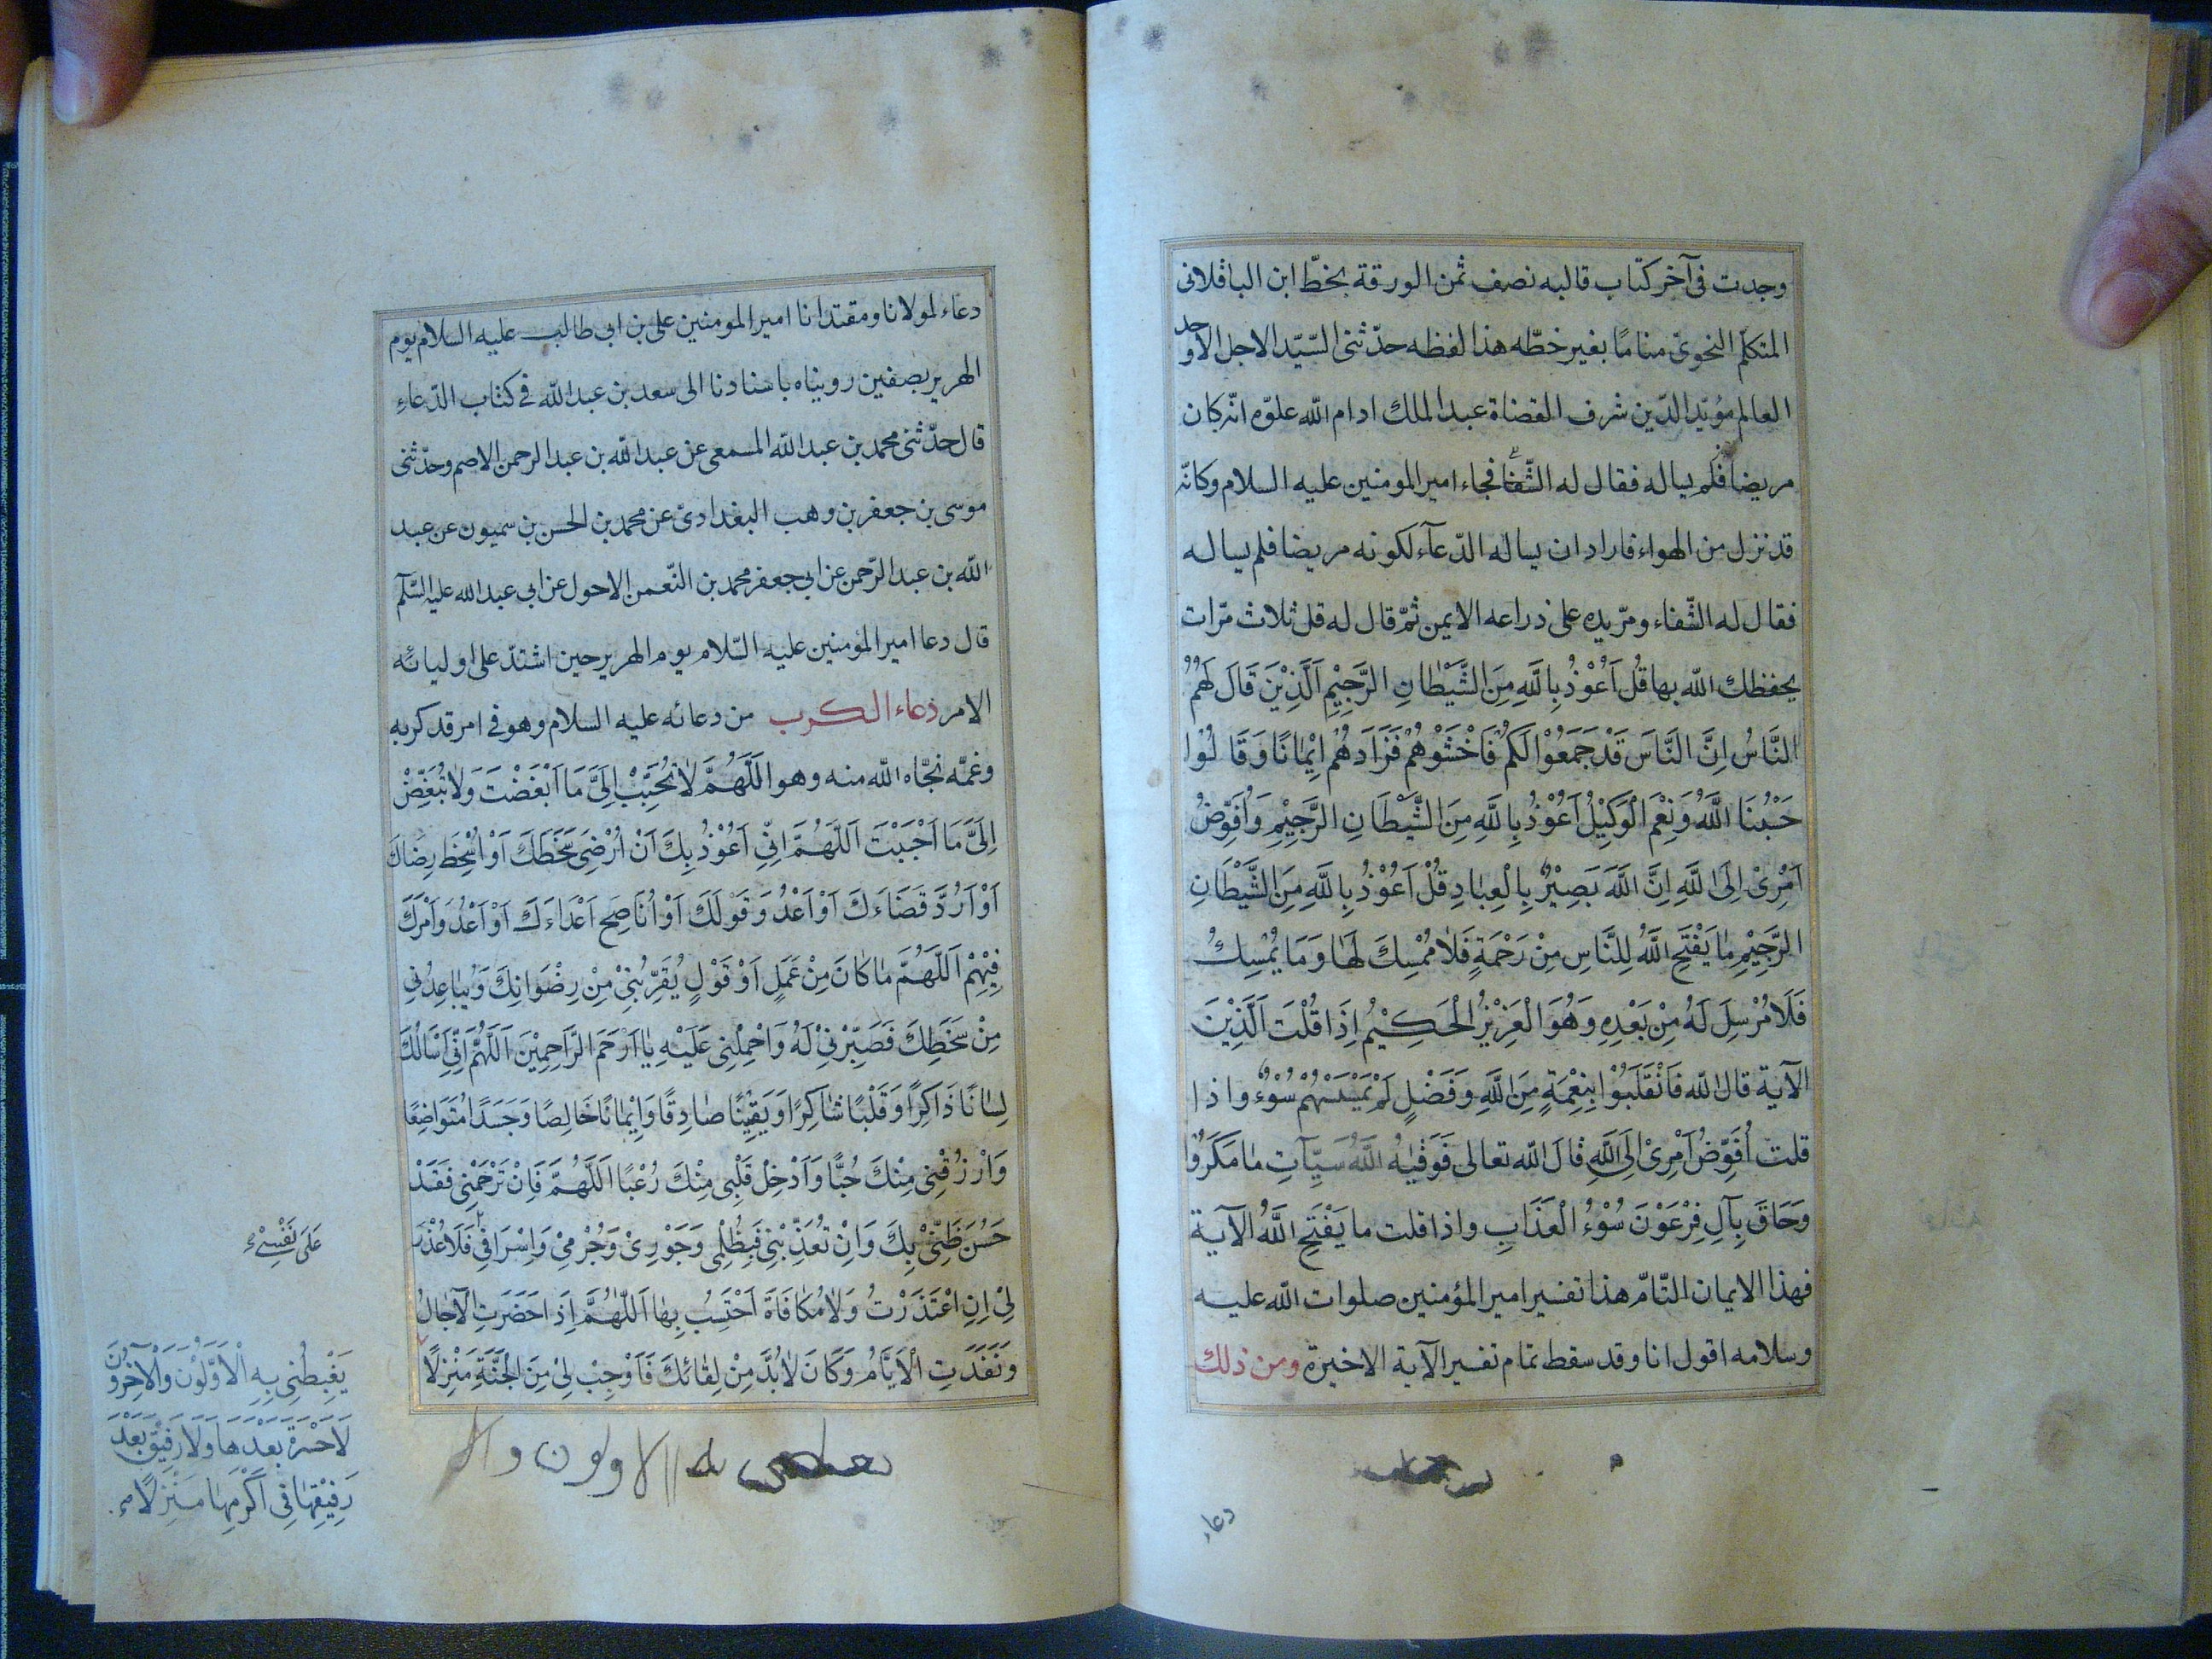 وجدت فى آخر كتاب قالبه نصف ثمن الورقة بخطّ ابن الباقلانى
المتكلّم النحوىّ مناما بغير خطّه هذا لفظه حدّثنى السّيّد الاجل الاوحد
العالم مؤيّد الدّين شرف القضاة عبد الملك ادام الله علوّه انّه كان
مريضا فلم يساله فقال له الشّفا فجاء امير المومنين عليه السلام وكانّه
قد نزل من الهواء فاراد ان يساله الدّعآء لكونه مريضا فلم يساله
فقال له الشّفاء ومرّ يده على ذراعه الايمن ثمّ قال له قل ثلاث مرّات
يحفظك الله بها قُل اَعُوْذُ بِاللَّهِ مِنَ الشَّيْطَانِ الرَّجِيْمِ اَلَّذِيْنَ قَالَ لَهُمُ
النَّاسُ اِنَّ النَّاسَ قَدْ جَمَعُوْا لَكُمْ فَاخْشَوْهُمْ فَزَادَهُمْ اِيْمَانًا وَقَالُوْا
حَسْبُنَا اللَّهُ وَنِعْمَ الْوَكِيْلُ اَعُوْذُ بِاللَّهِ مِنَ الشَّيْطَانِ الرَّجِيْمِ وَاُفَوِّضُ
اَمْرِىْ اِلَى اللَّهِ اِنَّ اللَّهَ بَصِيْرٌ بِالْعِبَادِ قُلْ اَعُوْذُ بِاللَّهِ مِنَ الشَّيْطَانِ
الرَّجِيْمِ مَا يَفْتَحِ اللَّهُ لِلنَّاسِ مِنْ رَحْمَةٍ فَلَا مُمْسِكَ لَهَا وَمَا يُمْسِكْ
فَلَا مُرْسِلَ لَهُ مِنْ بَعْدِهِ وَهُوَ الْعَزِيْزُ الْحَكِيْمُ اِذَا قُلْتَ اَلَّذِيْنَ
الآية قال الله فَانْقَلَبُوْا بِنِعْمَةٍ مِنَ اللَّهِ وَفَضْلٍ لَمْ يَمْسَسْهُمْ سُوْءٌ واذا
قلت اُفَوِّضُ اَمْرِىْ اِلَى اللَّهِ قال الله تعالى فَوَقٰيهُ اللَّهُ سَيِّآتِ مَا مَكَرُوْا
وَحَاقَ بِآلِ فِرْعَوْنَ سُوْءُ الْعَذَابِ واذا قلت ما يَفْتَحِ اللَّهُ الآية
فهذا الايمان التّامّ هذا تفسير امير المؤمنين صلوات الله عليه
وسلامه اقول انا وقد سقط تمام تفسير الآية الاخيرة ومن ذلك
دعاء
دعاء لمولانا ومقتدانا امير المومنين على بن ابى طالب عليه السلام يوم
الهرير بصفين رويناه باسنادنا الى سعد بن عبد الله فى كتاب الدّعاءِ
قال حدّثنى محمد بن عبد الله المسمعى عن عبد الله بن عبد الرحمن الاصم وحدّثنى
موسى بن جعفر بن وهب البغدادىّ عن محمد بن الحسن بن سميون عن عبد
الله بن عبد الرّحمن عن ابى جعفر محمد بن النّعمن الاحول عن ابى عبد الله عليه السّلم
قال دعا امير المؤمنين عليه السّلام يوم الهرير حين اشتدّ على اوليائه
الامر دعاء الكرب من دعائه عليه السلام وهو فى امر قد كربه
وغمّه نجّاه الله منه وهو اللَّهُمَّ لَا تُحَبِّبْ اِلَىَّ مَا اَبْغَضْتَ وَلَا تُبَغِّضْ
اِلَىَّ مَا اَحْبَبْتَ اَللَّهُمَّ اِنِّى اَعُوْذُ بِكَ اَنْ اُرْضِىَ سَخَطَكَ اَوْ اُسْخِطَ رِضَاكَ
اَوْ اَرُدَّ قَضَاءَكَ اَوْ اَعْدُوَ قَوْلَكَ اَوْ اُنَاصِحَ اَعْدَاءَكَ اَوْ اَعْدُوَ اَمْرَكَ
فِيْهِمْ اَللَّهُمَّ مَا كَانَ مِنْ عَمَلٍ اَوْ قَوْلٍ يُقَرِّبُنِىْ مِنْ رِضْوَانِكَ وَيُبَاعِدُنِى
مِنْ سَخَطِكَ فَصَبِّرْنِىْ لَهُ وَاحْمِلْنِى عَلَيْهِ يَا اَرْحَمَ الرَّاحِمِيْنَ اَللَّهُمَّ اِنِّى اَسْالُكَ
لِسَانًا ذَاكِرًا وَقَلْبًا شَاكِرًا وَيَقِيْنًا صَادِقًا وَاِيْمَانًا خَالِصًا وَجَسَدًا مُتَوَاضِعًا
وَارْزُقْنِى مِنْكَ حُبًّا وَاَدْخِلْ قَلْبِى مِنْكَ رُعْبًا اَللَّهُمَّ فَاِنْ تَرْحَمْنِى فَقَدْ
حَسُنَ ظَنِّىْ بِكَ وَاِنْ تُعَذِّبْنِى فَبِظُلْمِى وَجَوْرِىْ وَجُرْمِىْ وَاِسْرَافِى فَلَا عُذْرَ
لِىْ اِنِ اعْتَذَرْتُ وَلَا مُكَافَاةَ اَحْتَسِبُ بِهَا اَللَّهُمَّ اِذَا حَضَرَتِ الْآجَالُ
وَنَفَدَتِ الْاَيَّامُ وَكَانَ لَا بُدَّ مِنْ لِقَائِكَ فَاَوْجِبْ لِىْ مِنَ الْجَنَّةِ مَنْزِلًا
عَلَى نَفْسِىْ
يَغْبِطُنِى بِهِ الْاَوَّلُوْنَ وَالْآخِرُوْنَ
لَا حَسْرَةَ بَعْدَهَا وَلَا رَفِيْقَ بَعْدَ
رَفِيْقِهَا فِى اَكْرَمِهَا مَنْزِلًا